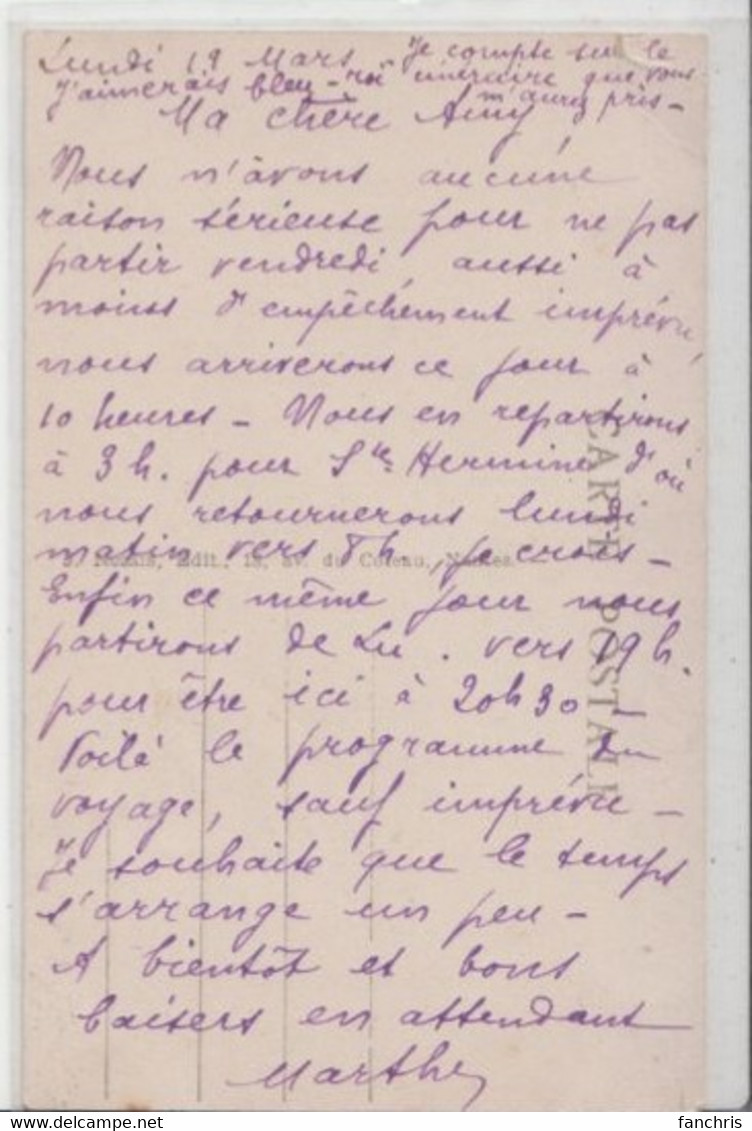 Lundi 19 Mars Je compte sur le
J'aimerais bleu-roi itinéraire que vous
m'aurez pris -
Ma chère Amy
Nous n'avons aucune
raison sérieuse pour ne pas
partir vendredi aussi à
moins d'empêchement imprévu,
nous arriverons ce jour à
10 heures - Nous en repartirons
à 3h. pour Ste Hermine d'où
nous retournerons lundi
matin vers 8h, je crois -
S. Nozais, Edit., 18, av. du Coteau, Nantes.
Enfin ce même jour nous
partirons de Lu. vers 19h.
pour être ici à 20h30 -
Voilà le programme du
voyage, sauf imprévu -
Je souhaite que le temps
s'arrange un peu -
A bientôt et bons
baisers en attendant
Marthe
CARTE POSTALE
fanchris